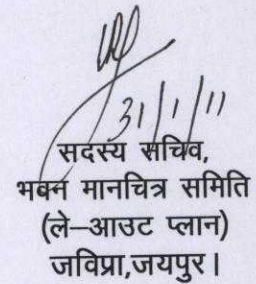 31/1/11
सदस्य सचिव,
भवन मानचित्र समिति
(ले–आउट प्लान)
जविप्रा,जयपुर।